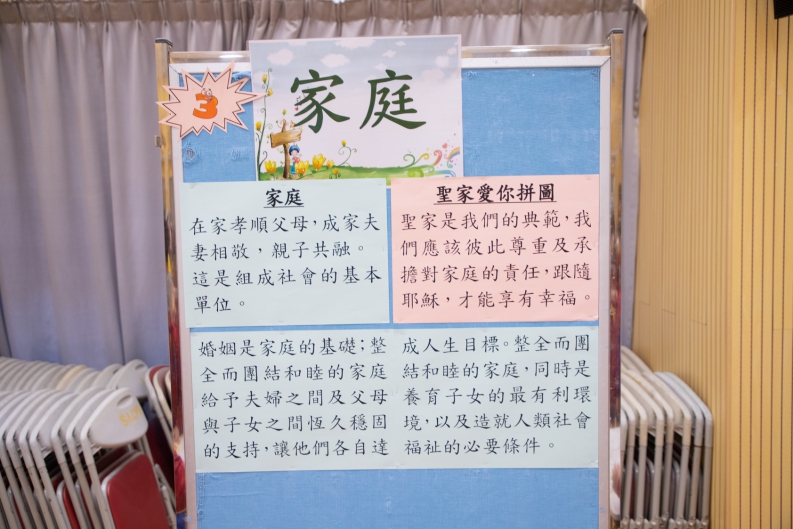 3
家庭
家庭
在家孝順父母，成家夫
妻相敬，親子共融。
這是組成社會的基本
單位。
聖家愛你拼圖
聖家是我們的典範，我
們應該彼此尊重及承
擔對家庭的責任，跟隨
耶穌，才能享有幸福。
婚姻是家庭的基礎；整
全而團結和睦的家庭
給予夫婦之間及父母
與子女之間恆久穩固
的支持，讓他們各自達
成人生目標。整全而團
結和睦的家庭，同時是
養育子女的最有利環
境，以及造就人類社會
福祉的必要條件。